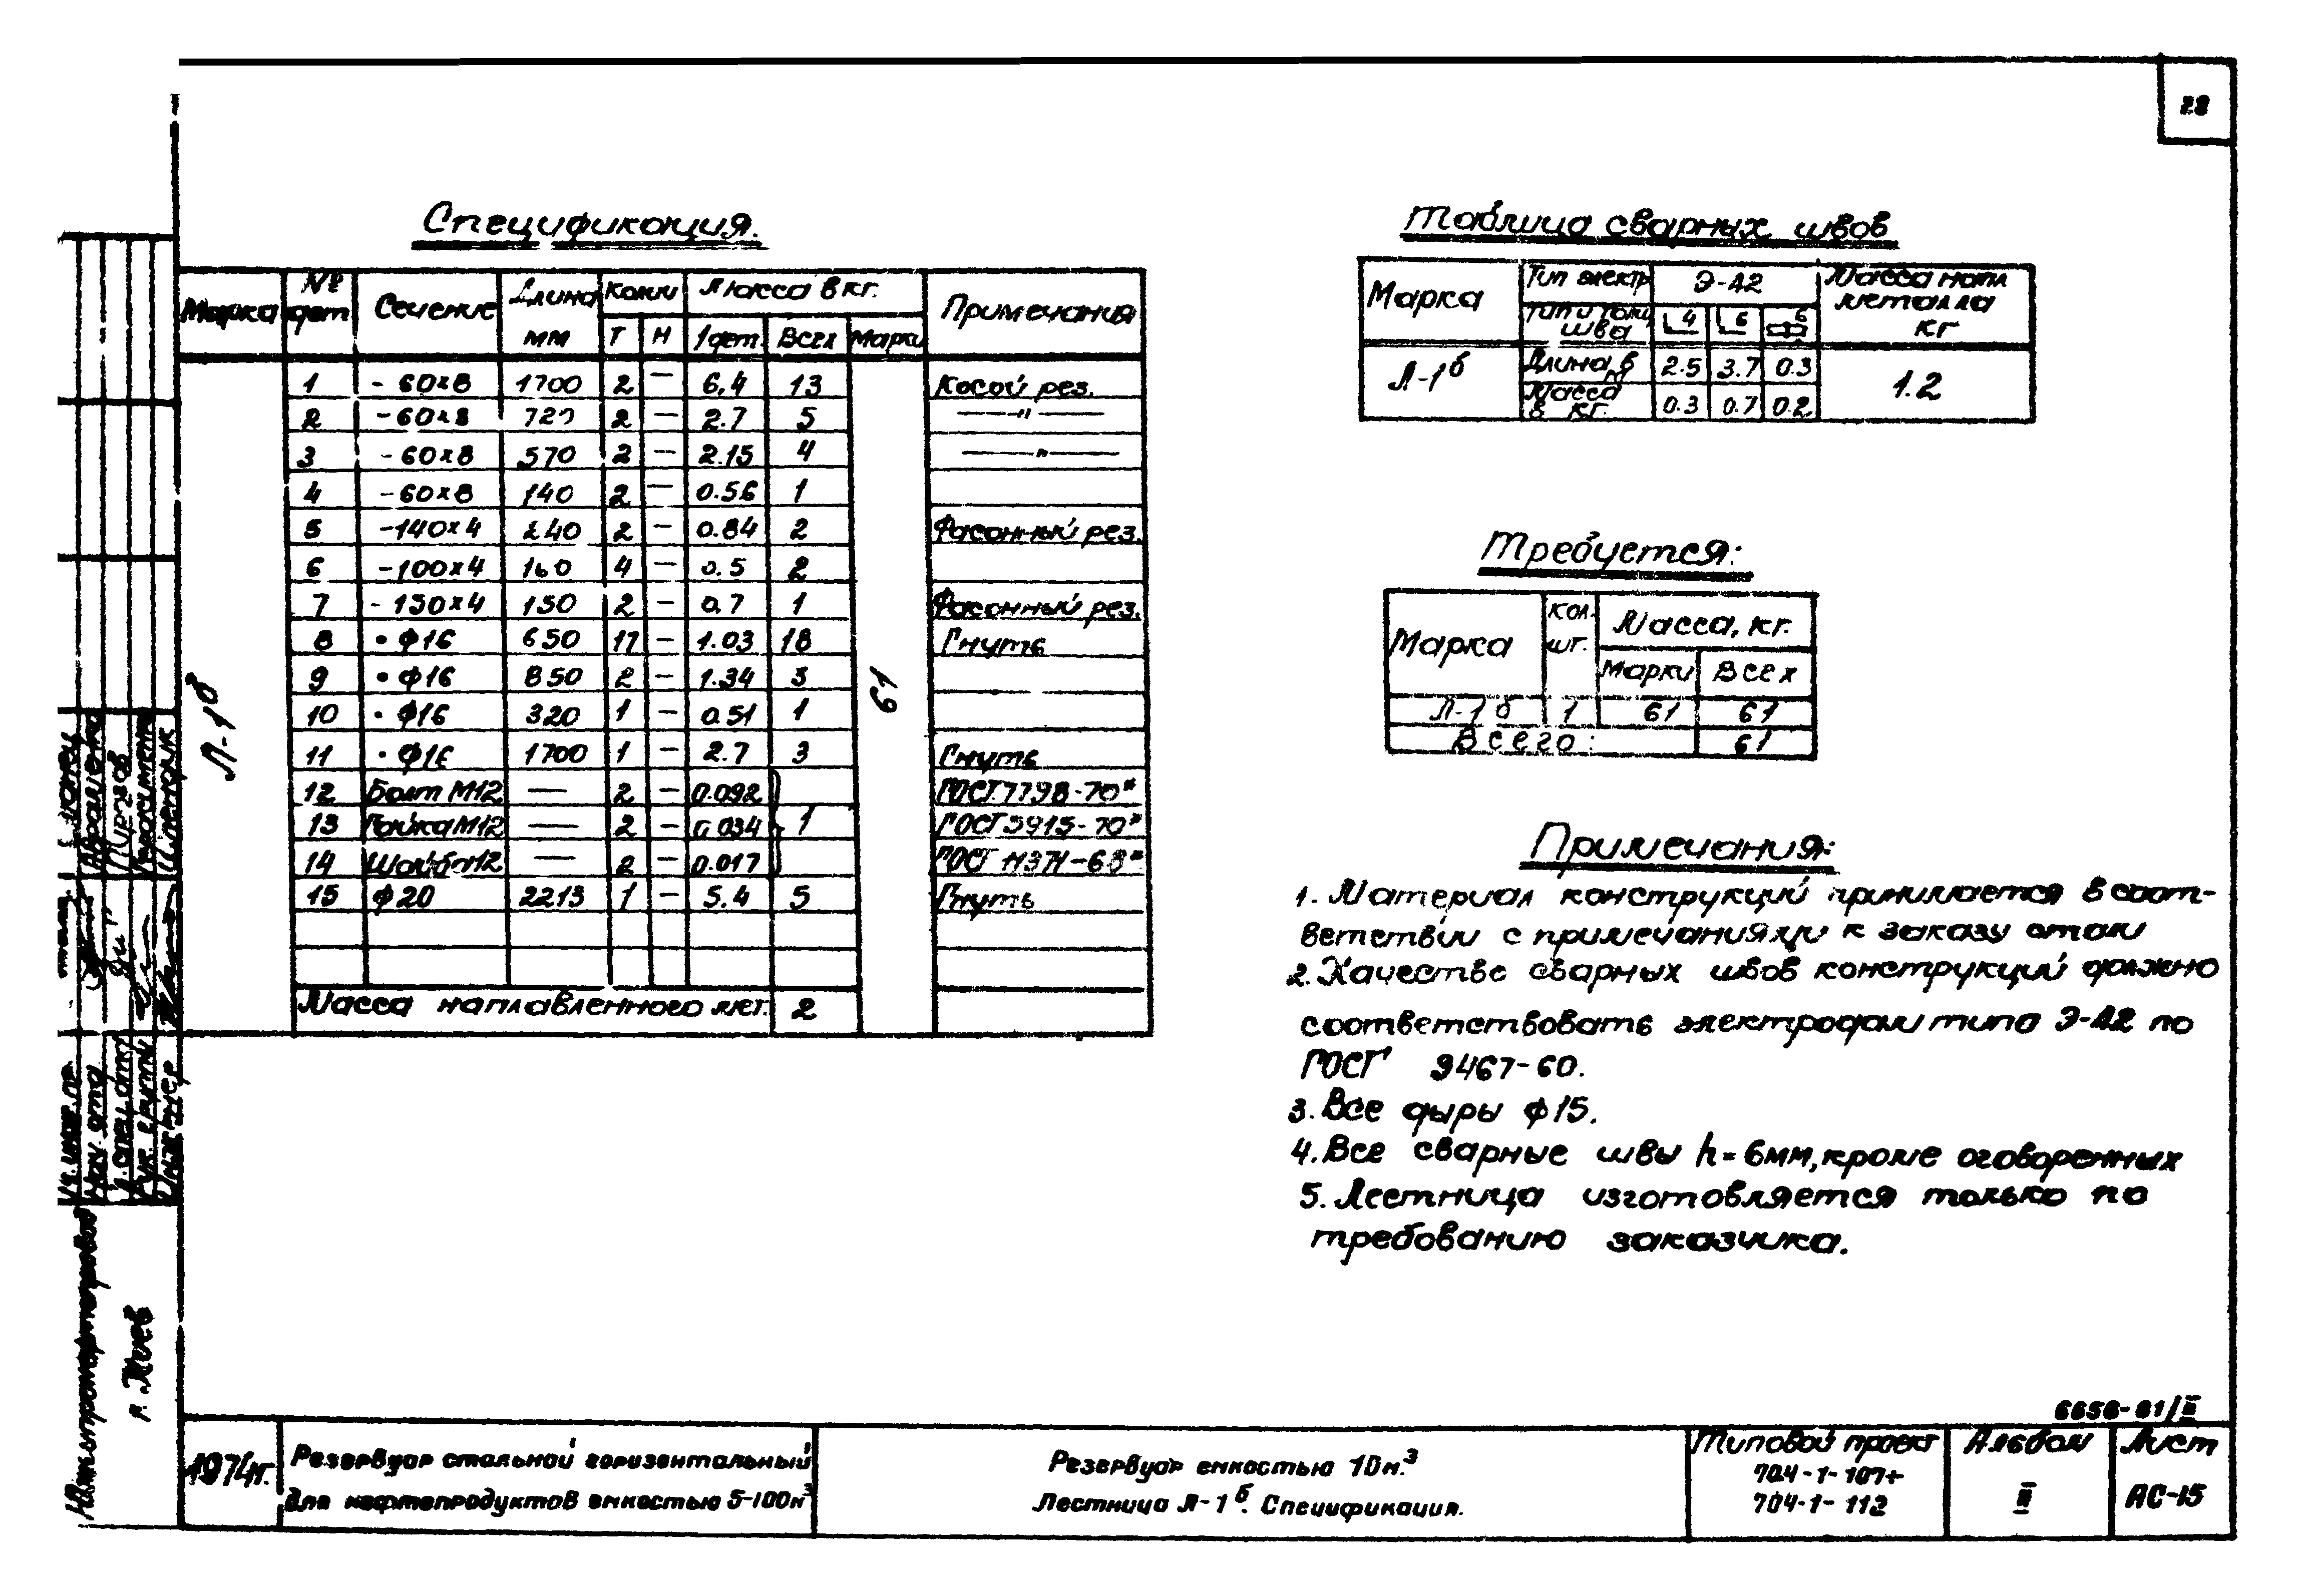 28
Спецификация.
Марка № дет Сечение Длина мм Колич Масса в кг. Примечания
Т Н 1 дет. Всех Марки
Л-1б 61
1 - 60х8 1700 2 — 6,4 13 Косой рез.
2 - 60х8 720 2 — 2.7 5 —"—
3 - 60х8 570 2 — 2.15 4 —"—
4 - 60х8 140 2 — 0.56 1
5 - 140х4 240 2 — 0.84 2 Фасонный рез.
6 - 100х4 160 4 — 0.5 2
7 - 150х4 150 2 — 0.7 1 Фасонный рез.
8 • ф16 650 17 — 1.03 18 Гнуть
9 • ф16 850 2 — 1.34 3
10 • ф16 320 1 — 0.51 1
11 • ф16 1700 1 — 2.7 3 Гнуть
12 Болт М12 — 2 — 0.092 ГОСТ 7798-70*
13 Гайка М12 — 2 — 0.034 1 ГОСТ 5915-70*
14 Шайба 12 — 2 — 0.017 ГОСТ 11371-68*
15 ф20 2213 1 — 5.4 5 Гнуть
Масса наплавленного мет. 2
Таблица сварных швов
Марка Тип электр Э-42 Масса напл металла кг
Тип и толщ шва 4 6 6
Л-1б Длина, в м 2.5 3.7 0.3 1.2
Масса в кг. 0.3 0.7 0.2
Требуется:
Марка кол. шт. Масса, кг.
Марки Всех
Л-1б 1 61 61
Всего: 61
Примечания:
1. Материал конструкций принимается в соот-
ветствии с примечаниями к заказу стали
2. Качество сварных швов конструкций должно
соответствовать электродам типа Э-42 по
ГОСТ 9467-60.
3. Все дыры ф15.
4. Все сварные швы h=6мм, кроме оговоренных
5. Лестница изготовляется только по
требованию заказчика.
Гл. инж. пр.
Нач. отд
Гл. спец. отд
Рук. группы
Инженер
Южгипронефтепровод
г. Киев
6656-01/II
1974г.
Резервуар стальной горизонтальный
для нефтепродуктов емкостью 5-100м3
Резервуар емкостью 10м.3
Лестница Л-1б. Спецификация.
Типовой проект
704-1-107÷
704-1-112
Альбом
II
Лист
АС-15